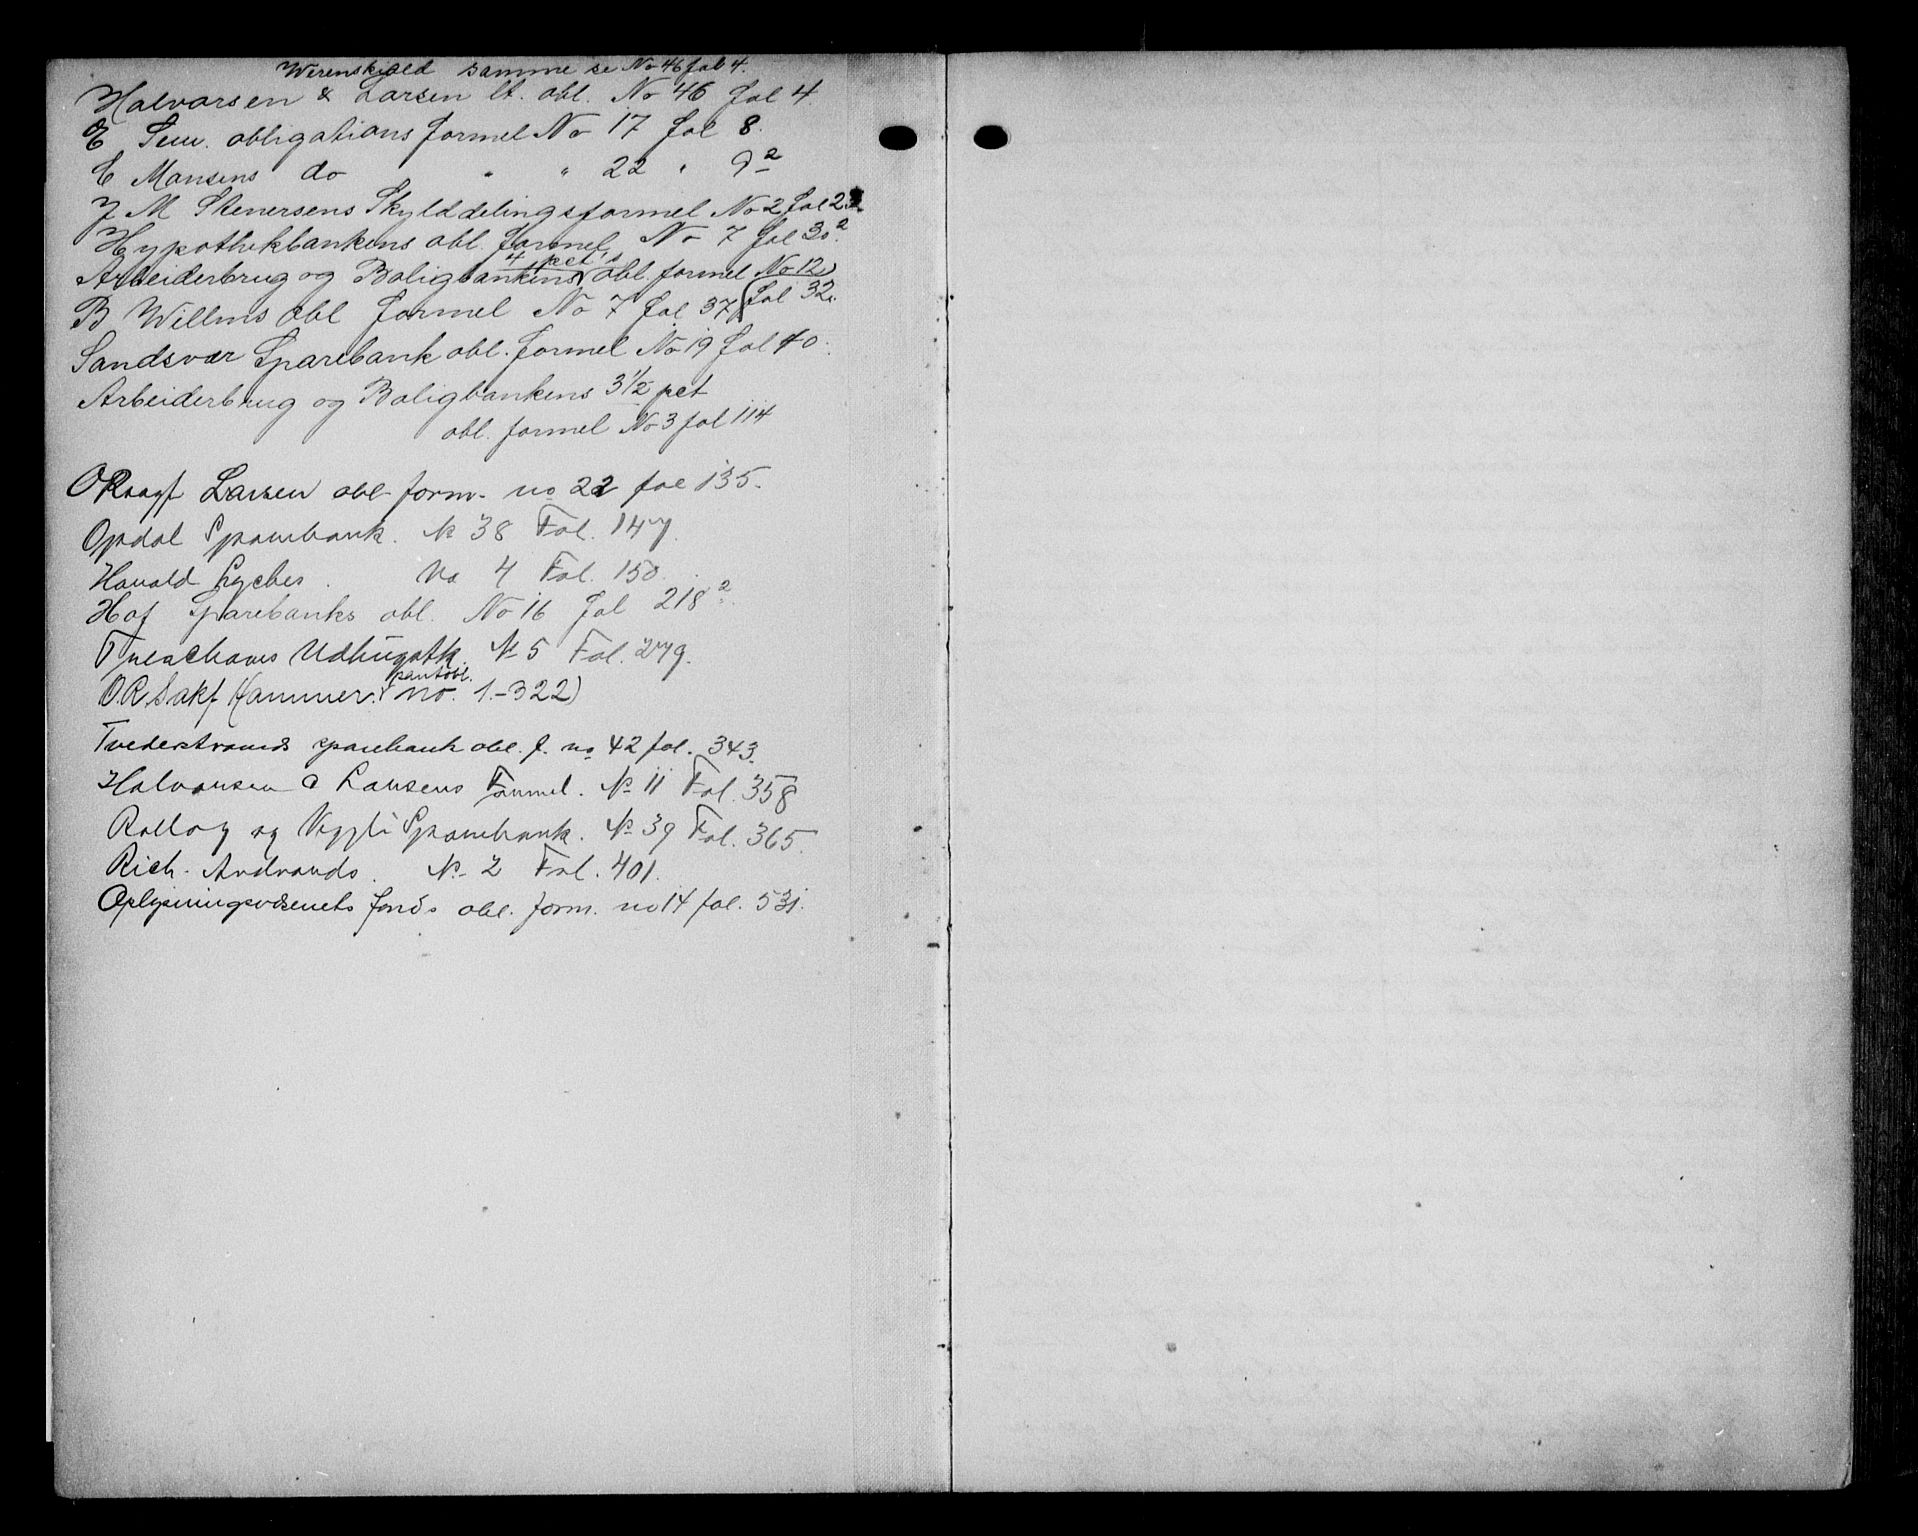 Werenskiold samme se No 46 fol 4.
Halvorsen & Larsen lt. obl. No 46 fol 4
E Sem. obligations formel No 17 fol 8.
E Monsens do " " 22 " 9²
J M Stenersens Skylddelingsformel No 2 fol
Hypothekbankens obl. formel No 7 fol 30².
4 pct's
Arbeiderbrug og Boligbankens obl. formel No 12
B Willms obl formel No 7 fol 37 fol 32.
Sandsvær Sparebank obl. formel No 19 fol 40.
Arbeiderbrug og Boligbankens 3 1/2 pct
obl. formel No 3 fol 114
O Rsagf Larsen obl. form. no 22 fol 135.
Opdal Sparebank. No 38 Fol. 147.
Harald Lyches. No 4 Fol. 150.
Hof Sparebanks obl. No 16 fol 218².
No 5 Fol. 279.
pantobl.
O.R.Sakf Hammer. no. 1.-322)
Tvedestrands sparebank obl. f. no 42 fol. 343.
Halvorsen & Larsens Formel. No 11 Fol. 358
Rollag og Veggli Sparebank. No 39 Fol. 365.
Rich. Andvords. No 2 Fol. 401.
Oplysningsvæsenets fonds obl. form. no 14 fol. 531.